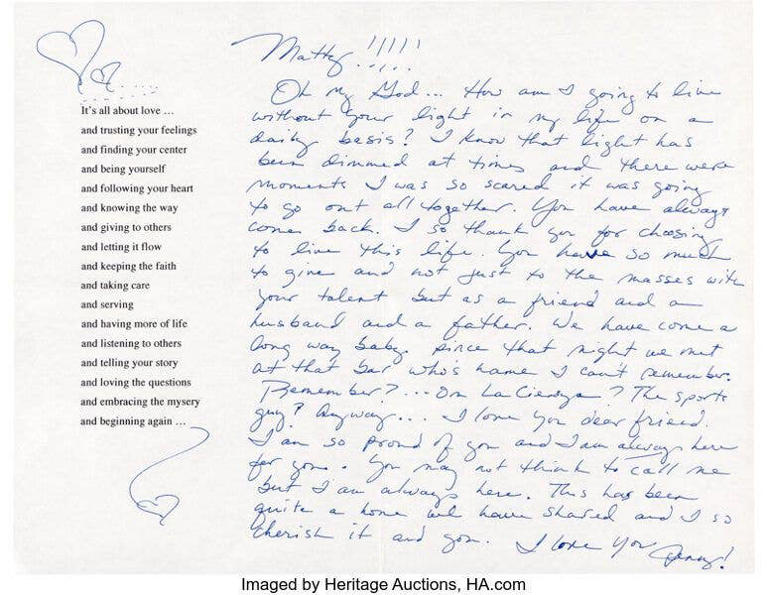 It's all about love ...
and trusting your feelings
and finding your center
and being yourself
and following your heart
and knowing the way
and giving to others
and letting it flow
and keeping the faith
and taking care
and serving
and having more of life
and listening to others
and telling your story
and loving the questions
and embracing the mysery
and beginning again ...
Matty!!!!!
Oh my God... How am I going to live
without your light in my life on a
daily basis? I know that light has
been dimmed at times and there were
moments I was so scared it was going
to go out all together. You have always
come back. I so thank you for choosing
to live this life. You have so much
to give and not just to the masses with
your talent but as a friend and a
husband and a father. We have come a
long way baby since that night we met
at that bar who's name I can't remember.
Remember?... On La Cienega? The sports
guy? Anyway... I love you dear friend.
I am so proud of you and I am always here
for you. You may not think to call me
but I am always here. This has been
quite a home we have shared and I so
cherish it and you. I love you Jenny!
Imaged by Heritage Auctions, HA.com